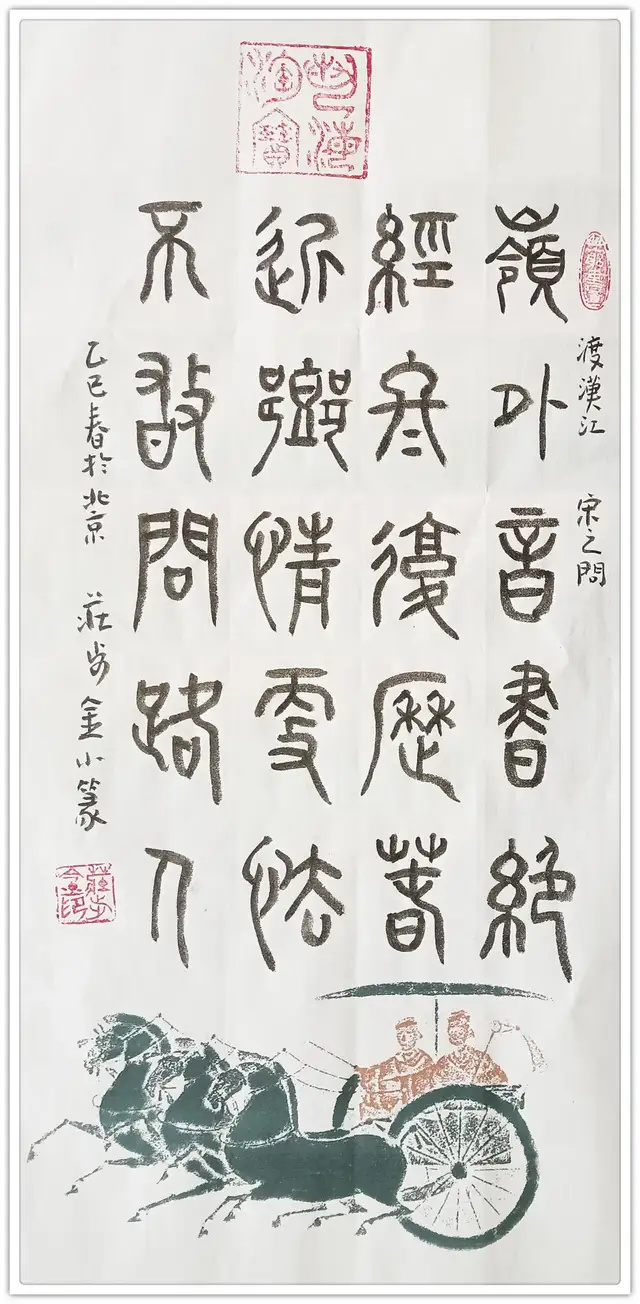 渡漢江 宋之問
嶺外音書絕
經冬復歷春
近鄉情更怯
不敢問路人
乙巳春於北京 莊步金小篆
莊步金印